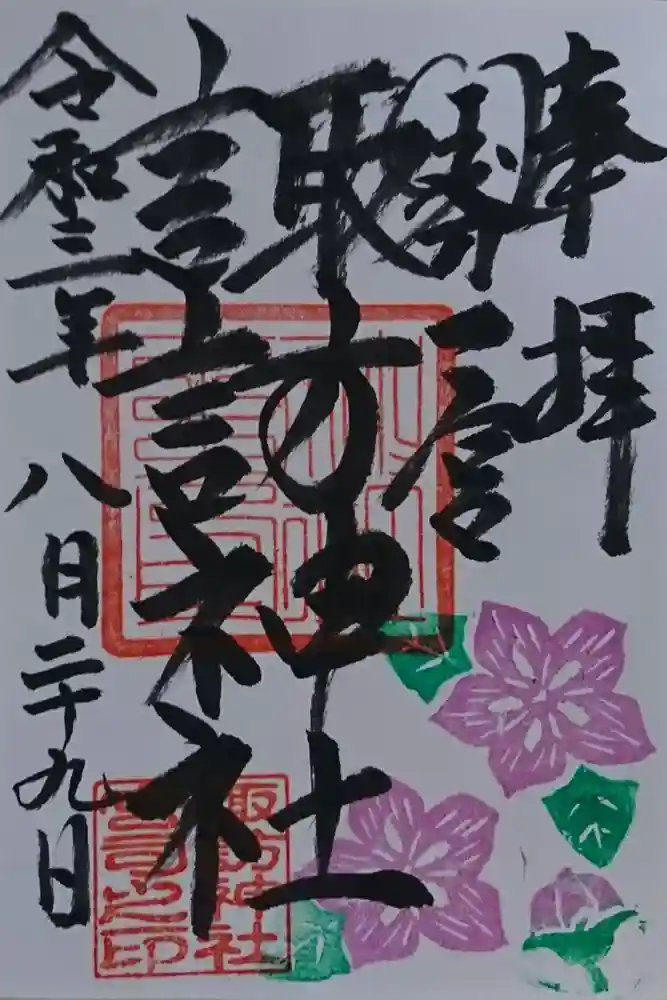 奉拝
一宮
諏訪神社
令和三年八月二十九日
諏訪神社
宮司之印